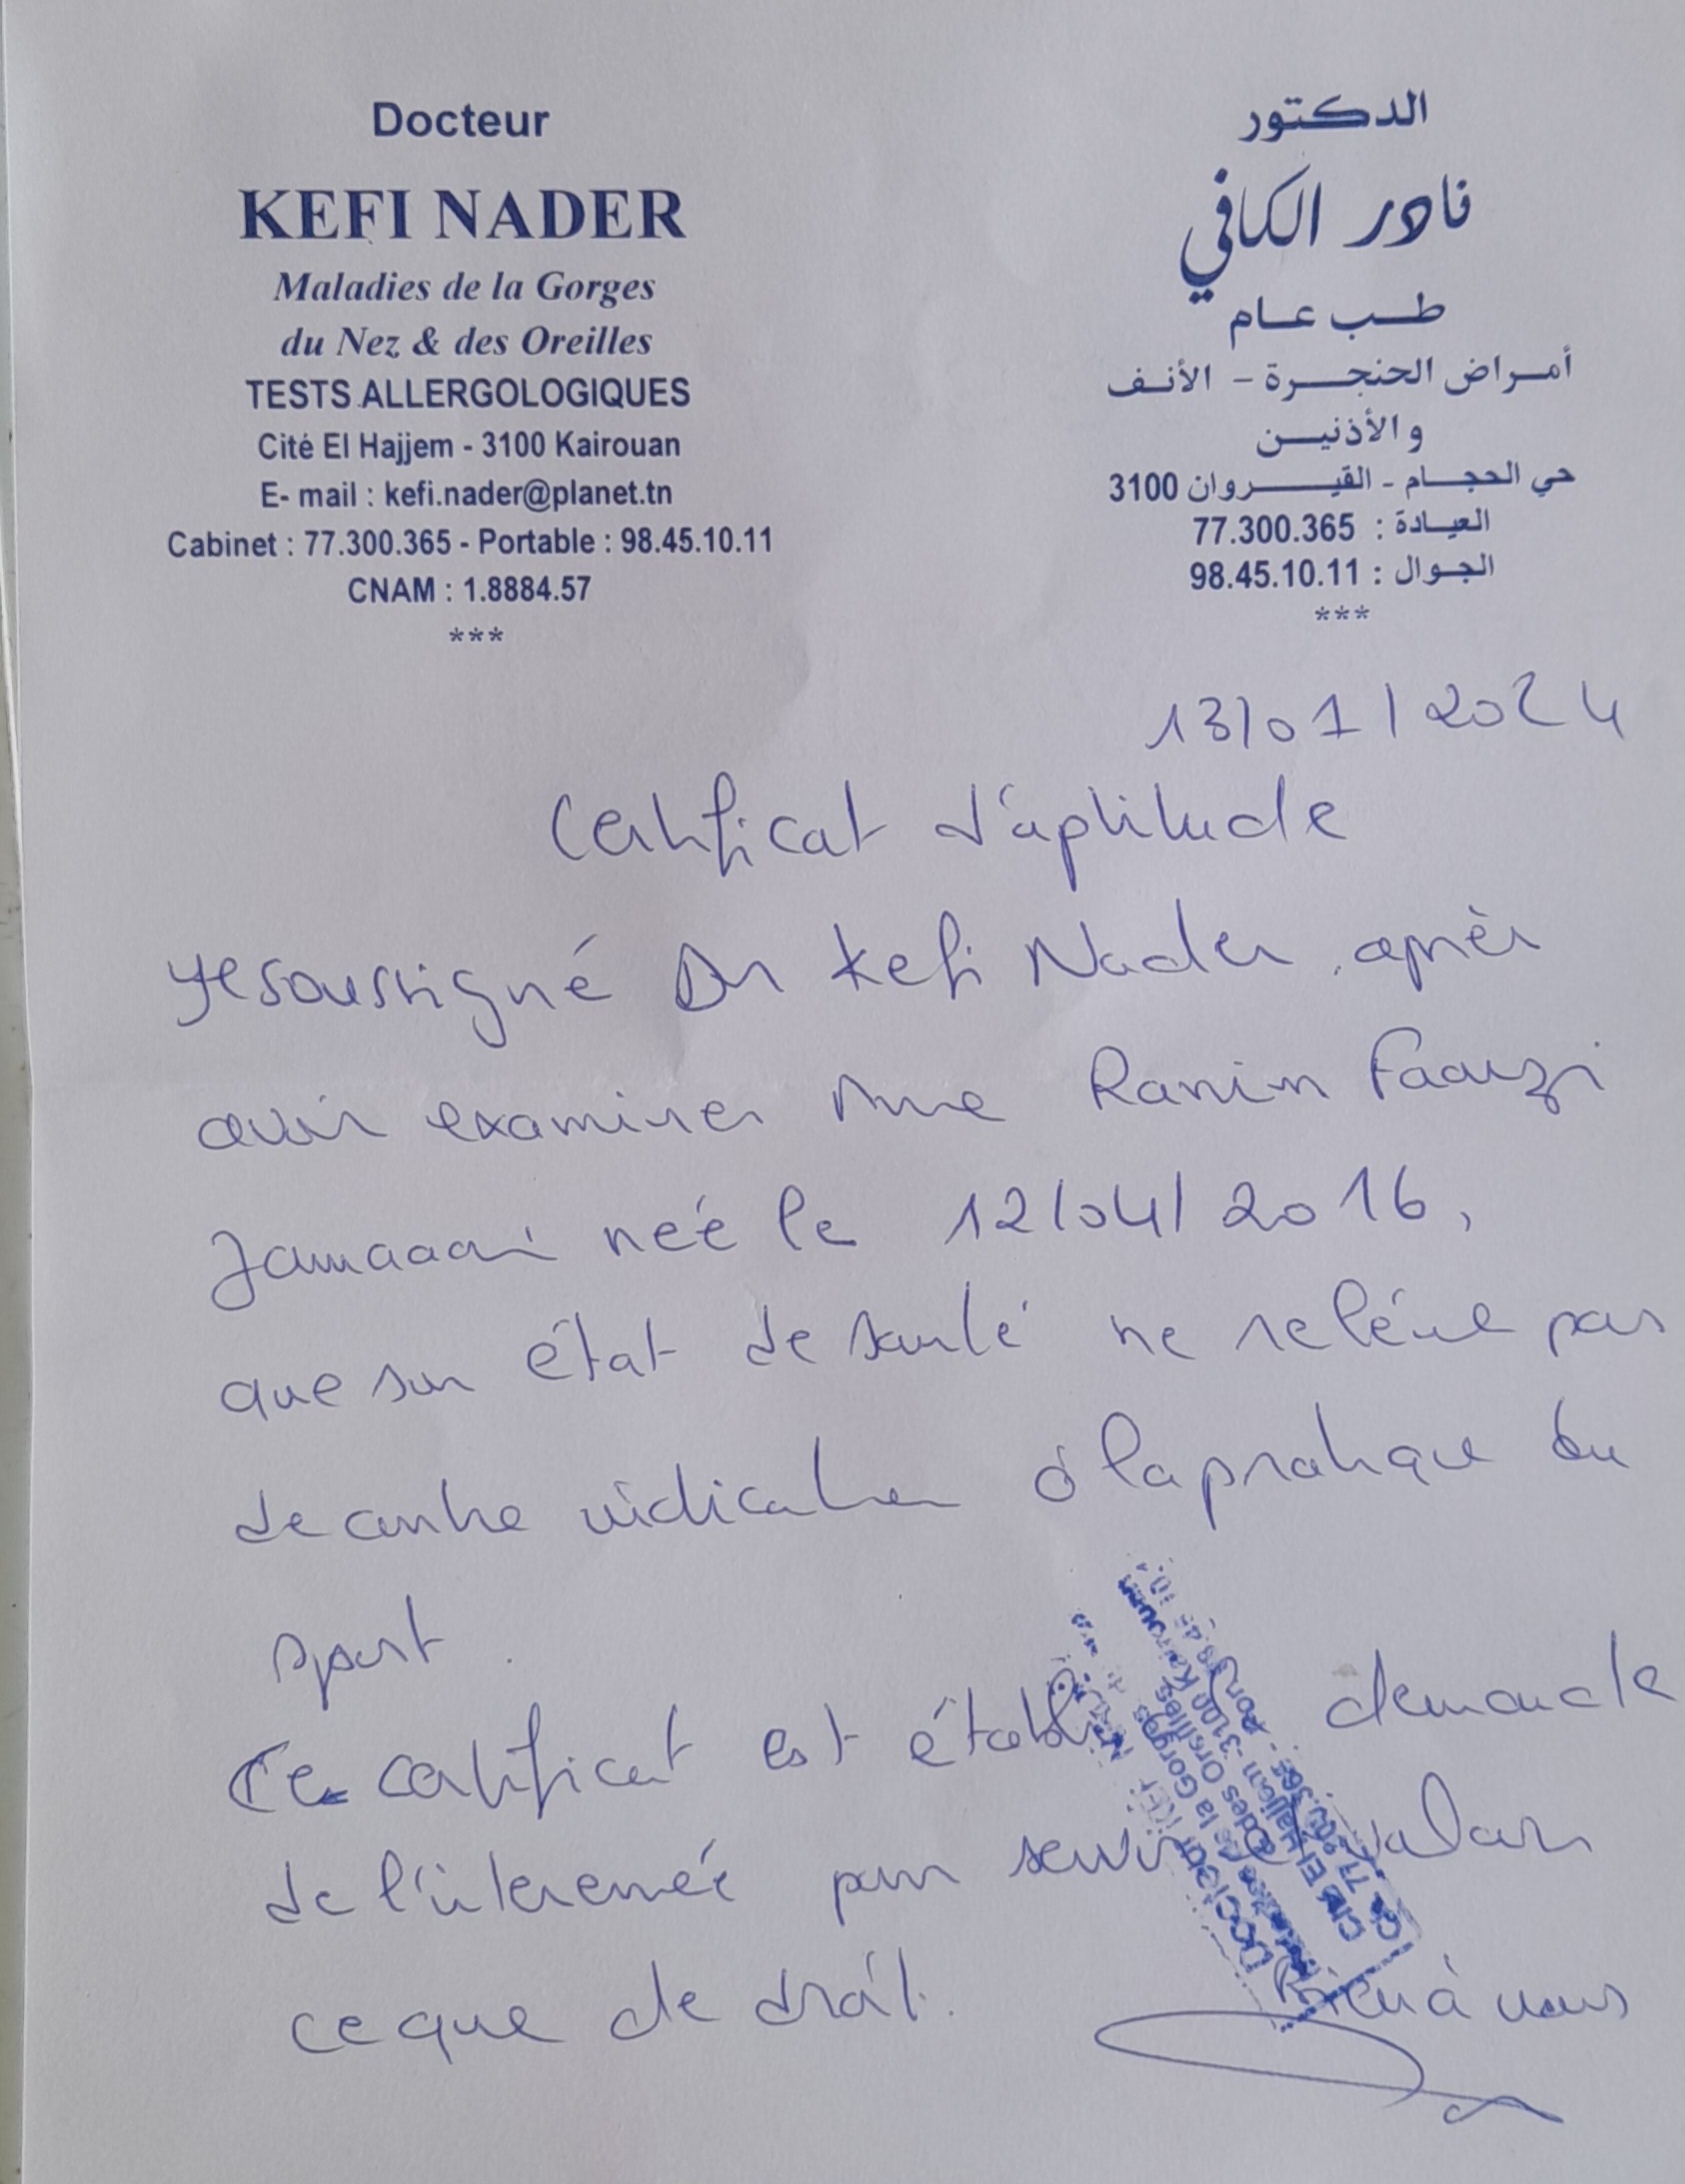 Docteur
KEFI NADER
Maladies de la Gorges
du Nez & des Oreilles
TESTS ALLERGOLOGIQUES
Cité El Hajjem - 3100 Kairouan
E- mail : kefi.nader@planet.tn
Cabinet : 77.300.365 - Portable : 98.45.10.11
CNAM : 1.8884.57
***
الدكتور
نادر الكافي
طب عام
أمراض الحنجرة - الأنف
والأذنين
حي الحجام - القيروان 3100
العيادة : 77.300.365
الجوال : 98.45.10.11
***
13/01/2024
Certificat d'aptitude
Je soussigné Dr Kefi Nader, après
avoir examiner Mme Ranim Faouzi
née le 12/04/2016,
que son état de santé ne reléve pas
de contre indication à la pratique du
sport.
Ce certificat est établi demande
de l'intéressée pour servir valoir
ce que de droit.
Docteur KEFI
de la Gorges
des Oreilles
Cité El Hajjem - 3100 Kairouan
77.300.365 - 98.45.10.